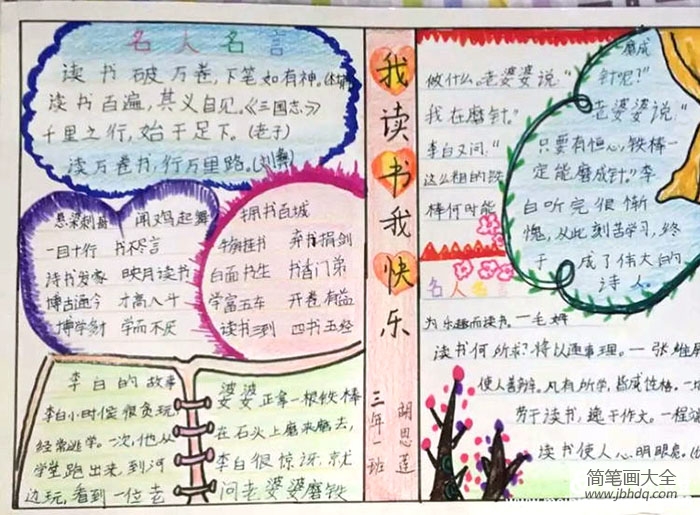 名人名言
读书破万卷，下笔如有神。
读书百遍，其义自见。《三国志》
千里之行，始于足下。（老子）
读万卷书，行万里路。
悬梁刺股 闻鸡起舞
一目十行 书不尽言
诗书发家 映月读书
博古通今 才高八斗
博学多才 学而不厌
拥书百城
牛角挂书 弃书捐剑
白面书生 书香门第
学富五车 开卷有益
读书三到 四书五经
李白的故事
李白小时侯很贪玩
经常逃学。一次，他从
学堂跑出来，到河
边玩，看到一位老
婆婆正拿一根铁棒
在石头上磨来磨去，
李白很惊讶，就
问老婆婆磨铁
我读书我快乐
三年一班 胡思莲
做什么。老婆婆说："
我在磨针。"
李白又问："
这么粗的铁
棒何时能
磨成
针呢？"
老婆婆说"
只要有恒心，铁棒一
定能磨成针。"李
白听完很惭
愧，从此刻苦学习，终
于成了伟大的
诗人
名人名言
为乐趣而读书。一毛姆
读书何所求？将以通事理。一张维屏
使人善辩。凡有所学，皆成性格。一
劳于读书，逸于作文。一程
读书使人心明眼亮。
简笔画大全
www.jbhdq.com